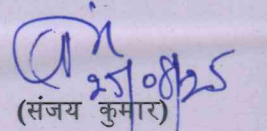 25/08/25
(संजय कुमार)